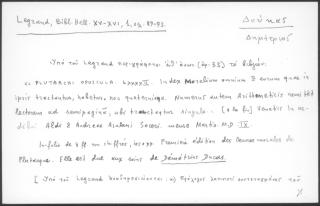 Legrand, Bibl. Hell. XV-XVI, 1, σσ. 89-93.
Δούκας
Δημήτριος
Ὑπὸ τοῦ Legrand περιγράφεται ὡς (ἀρ. 33) τὸ βιβλίον:
PLUTARCHI OPUSCULA LXXXXII. Index Moralium omnium & eorum quae in
ipsis tractantur, habetur hoc quaternione. Numerus autem Arithmeticis remittit
lectorem ad semipaginam, ubi tractantur singula. [à la fin] Venetiis in ae-
dibus Aldi & Andreae Asulani Soceri. mense Martio. M.D.IX.
In-folio de 8 ff. non chiffrés, Première édition des Oeuvres morales de
Plutarque. Elle est due aux soins de Démétrius Ducas.
[Ὑπὸ τοῦ Legrand